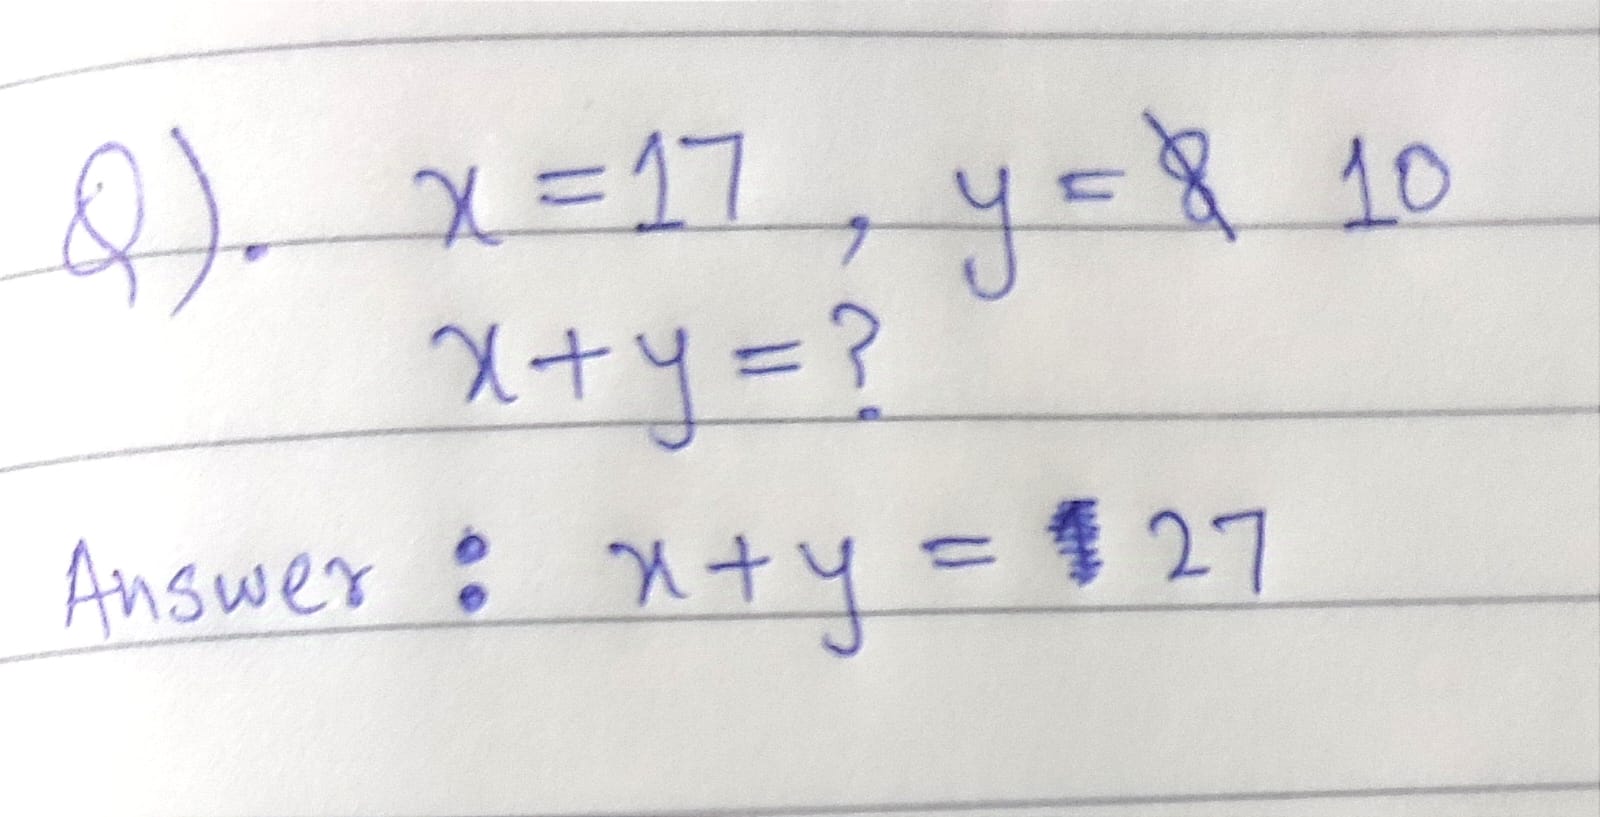 Q). x = 17 , y = 10
x + y = ?
Answer : x + y = 27